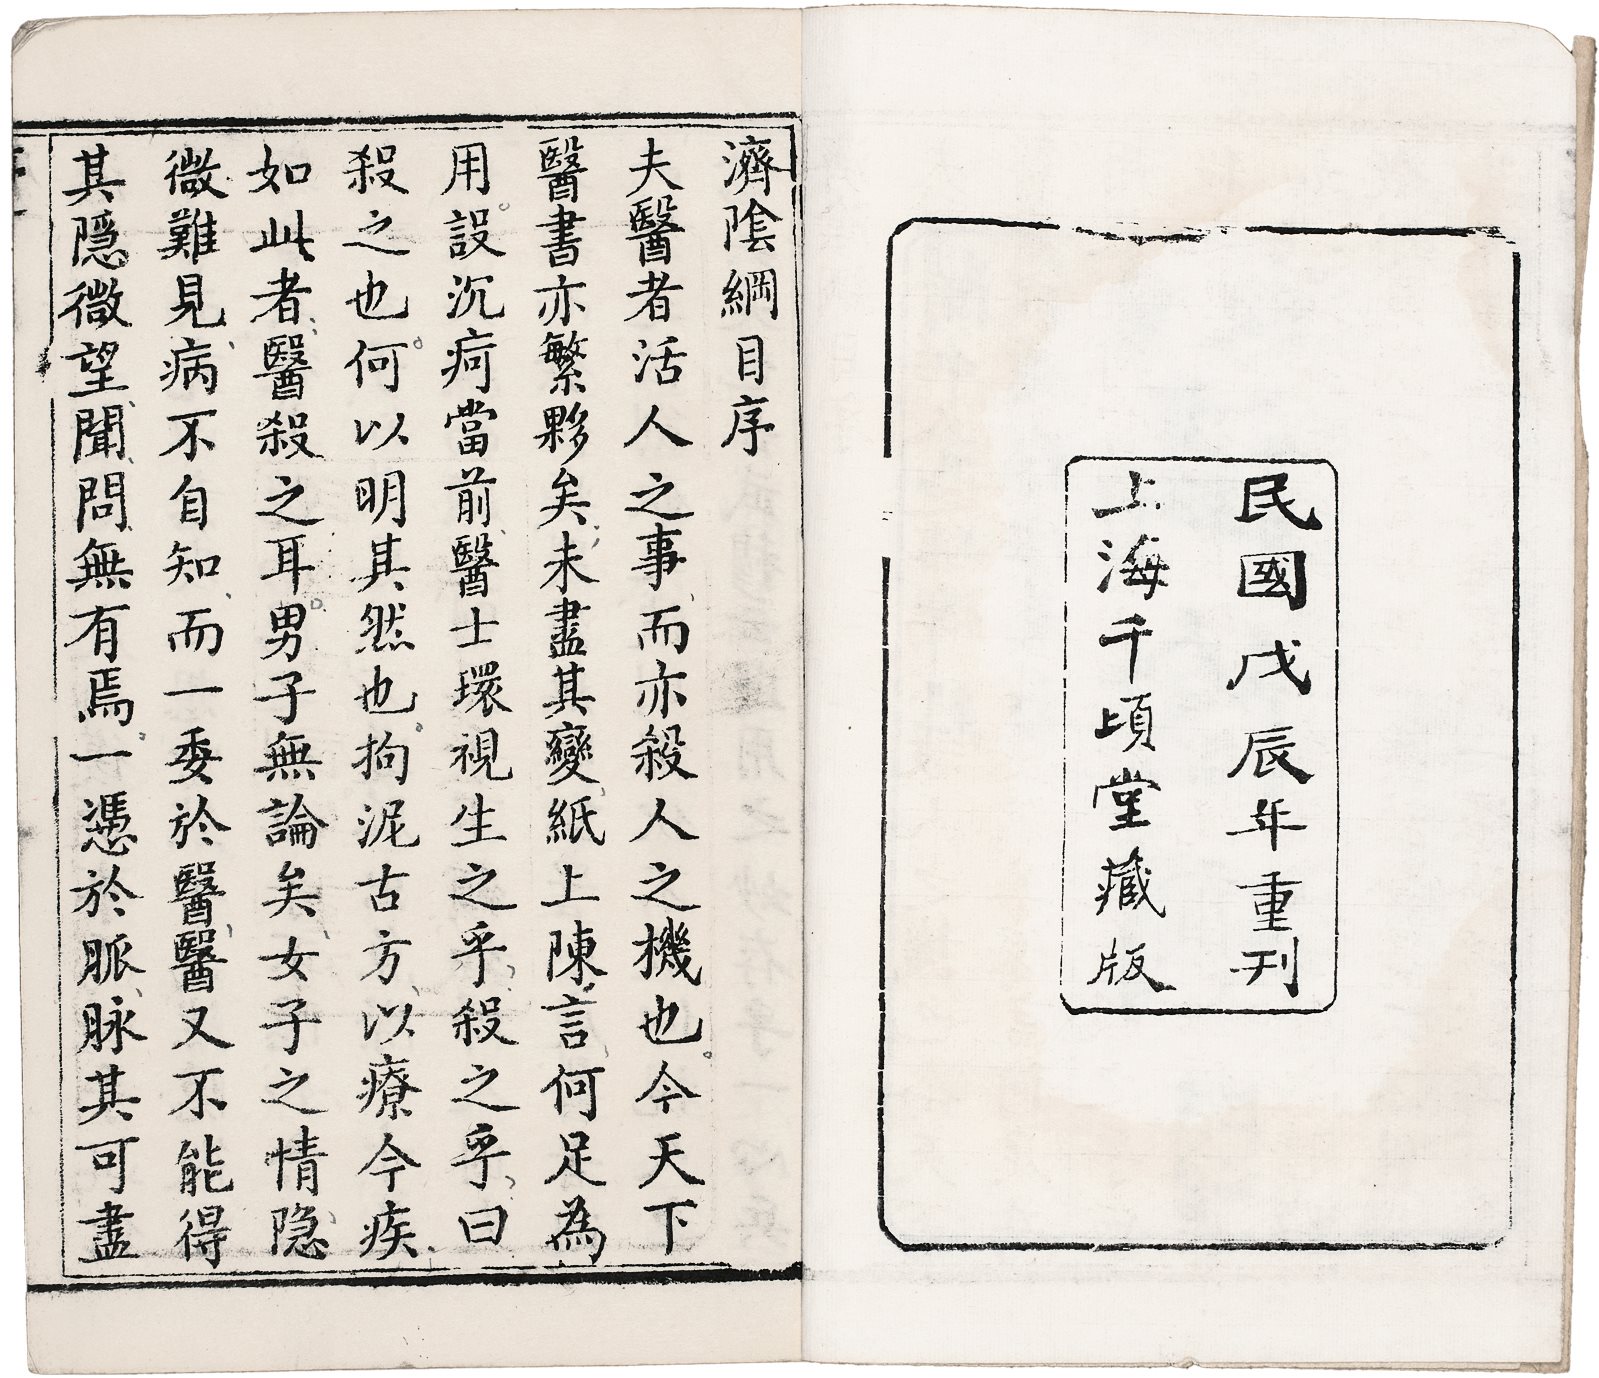 民國戊辰年重刊
上海千頃堂藏版
濟陰綱目序
夫醫者活人之事而亦殺人之機也今天下
醫書亦繁夥矣未盡其變紙上陳言何足為
用設沉疴當前醫士環視生之乎殺之乎曰
殺之也何以明其然也拘泥古方以療今疾
如此者醫殺之耳男子無論矣女子之情隐
微難見病不自知而一委於醫醫又不能得
其隱微望聞問無有焉一憑於脈脉其可盡